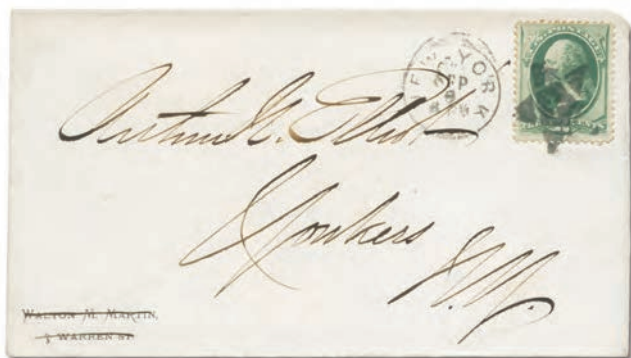 NEW YORK
SEP
9
POSTAGE
Arthur H. Elliot
Yonkers
N.Y.
WALTON M. MARTIN,
WARREN ST.